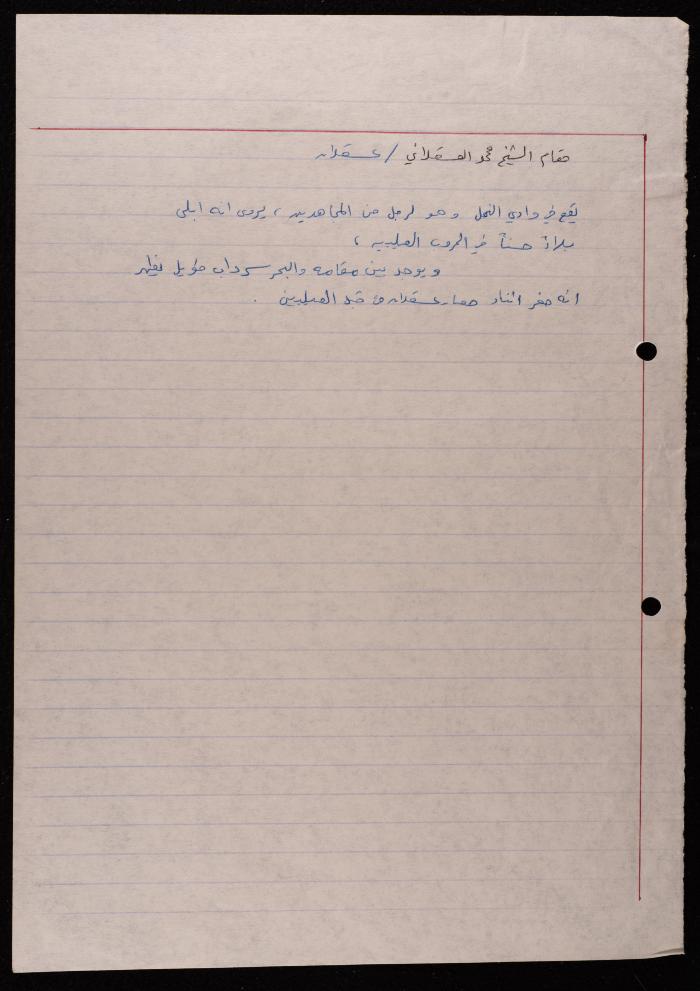 مقام الشيخ محمد العسقلاني / عسقلان
يقع في وادي النمل وهو لرجل من المجاهدين ، يروى انه ابلى
بلاءً حسناً في الحروب الصليبيه ،
و يوجد بين مقامه والبحر سرداب طويل يظهر
انه حفر اثناء حصار عسقلان من قبل الصليبيين .